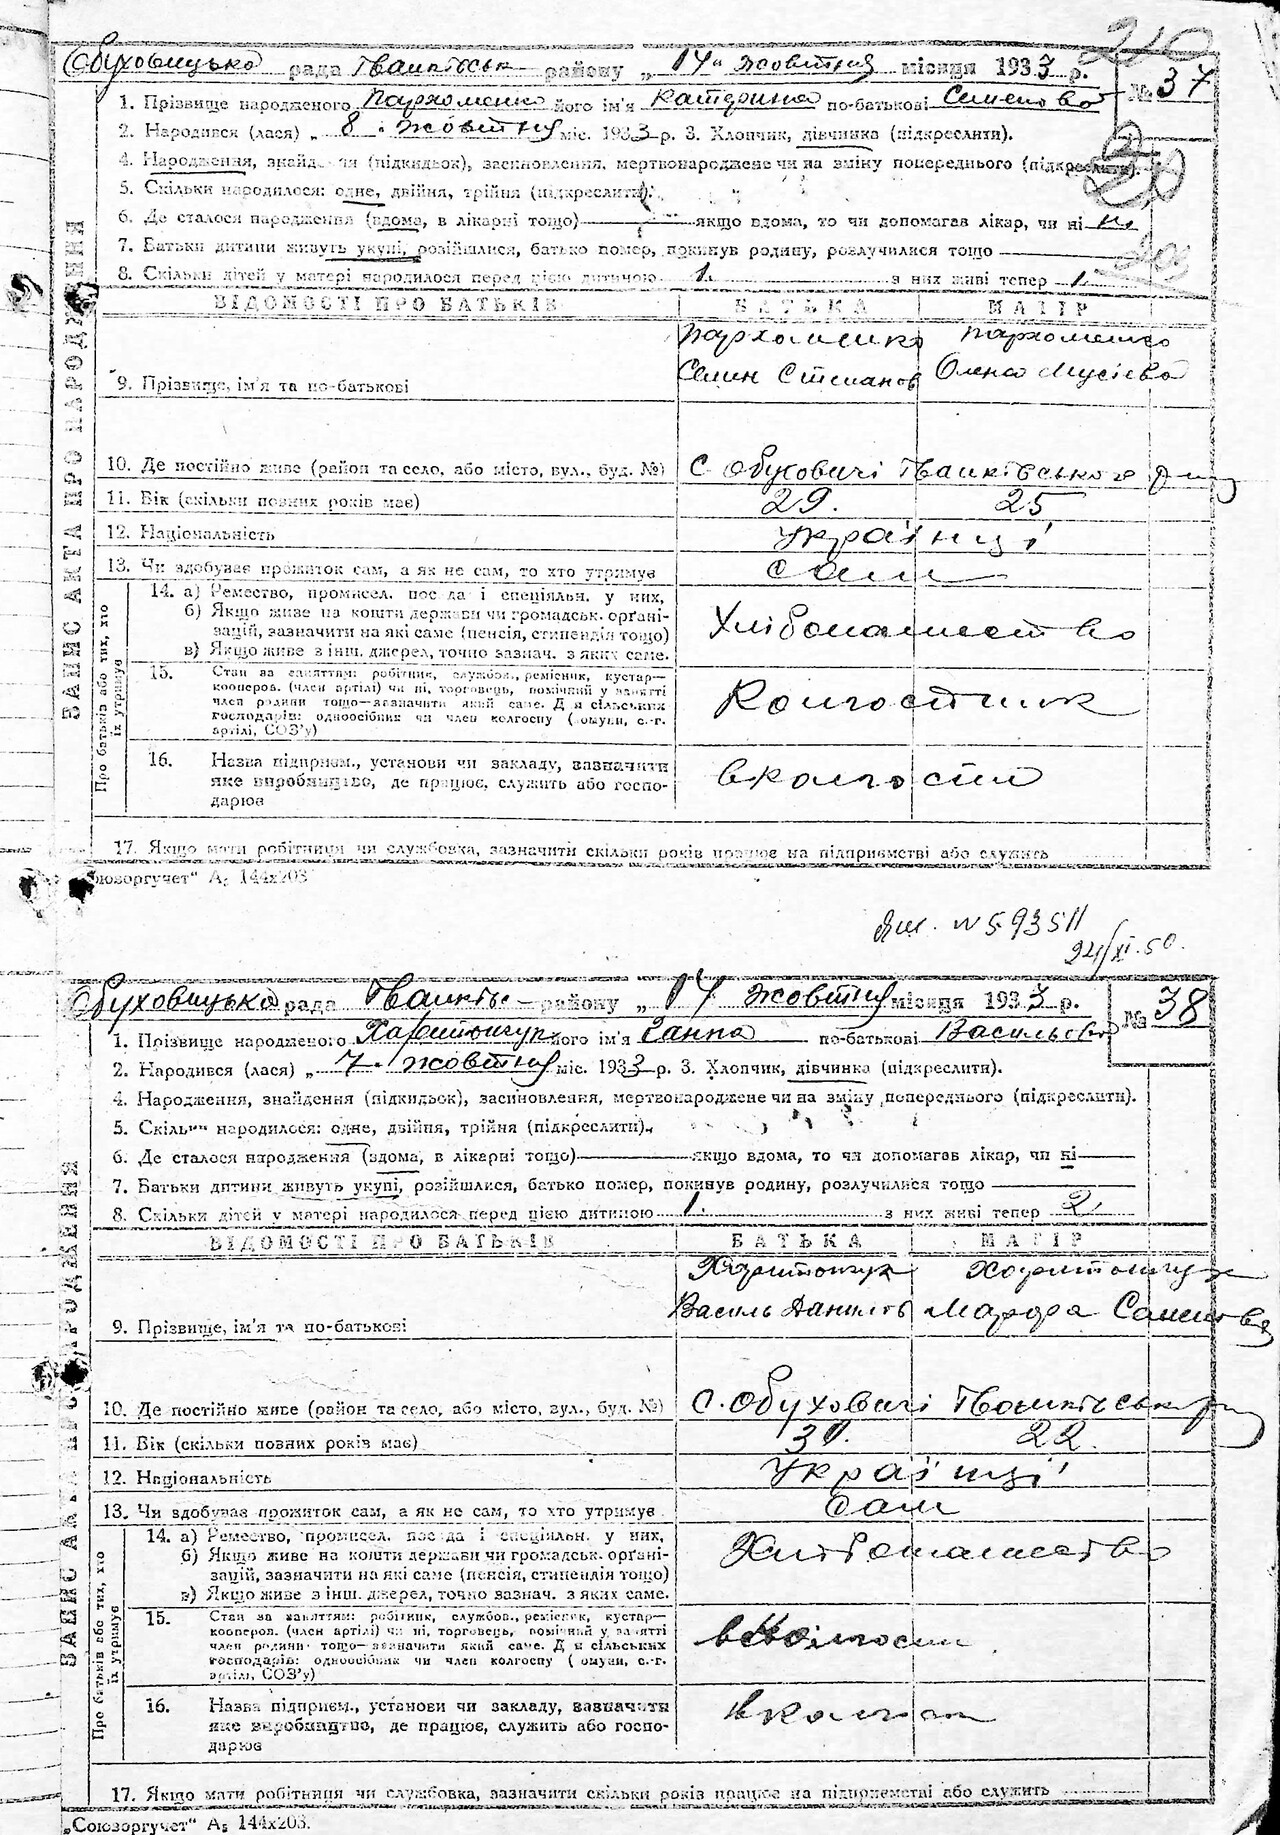 210
Обуховицька рада Іванківськ району „ 14 " жовтня місяця 1933 р.
№ 37
1. Прізвище народженого Пархоменко його ім'я Катерина по-батькові Семенова
2. Народився (лася) „ 8 . жовтня міс. 1933 р. 3. Хлопчик, дівчинка (підкреслити).
4. Народження, знайд я (підкидьок), засиновлення, мертвонароджене чи на зміну попереднього (підкреслити).
5. Скільки народилося: одне, двійня, трійня (підкреслити).
6. Де сталося народження (вдома, в лікарні тощо) якщо вдома, то чи допомагав лікар, чи ні ні
7. Батьки дитини живуть укупі, розійшлися, батько помер, покинув родину, розлучилися тощо
8. Скільки дітей у матері народилося перед цією дитиною 1. з них живі тепер 1.
ЗАПИС АКТА ПРО НАРОДЖЕННЯ
ВІДОМОСТІ ПРО БАТЬКІВ БАТЬКА МАТІР
Пархоменко Пархоменко
9. Прізвище, ім'я та по-батькові Семен Степанов Олена Мусієва
10. Де постійно живе (район та село, або місто, вул., буд. №) с. Обуховичі Іванківського р-ну
11. Вік (скільки повних років має) 29. 25
12. Національність українці
13. Чи здобуває прожиток сам, а як не сам, то хто утримує сам
Про батьків або тих, хто їх утримує
14. а) Ремество, промисел. пос да і спеціяльн. у них,
б) Якщо живе на кошти держави чи громадськ. орґані-
зацій, зазначити на які саме (пенсія, стипендія тощо) Хлібопашество
в) Якщо живе з інш. джерел, точно зазнач. з яких саме.
15. Стан за заняттям: робітник, службов., ремісник, кустар—
коопеpов. (член артілі) чи ні, торговець, помічний у занятті
член родини тощо—зазначити який саме. Д я сільських Колгоспник
господарів: одноосібник чи член колгоспу ( омуни, с.-г.
артілі, СОЗ'у)
16. Назва підприєм., установи чи закладу, зазначити
яке виробництво, де працює, служить або госпо- в колгоспі
дарює
17. Якщо мати робітниця чи службовка, зазначити скільки років працює на підприємстві або служить
„Союзоргучет" А5 144х203
N 593511
24/XI-50.
Обуховицька рада Іванків – району „ 14 жовтня місяця 1933 р.
№ 38
1. Прізвище народженого Харитончук його ім'я Ганна по-батькові Васильова
2. Народився (лася) „ 7. жовтня міс. 1933 р. 3. Хлопчик, дівчинка (підкреслити).
4. Народження, знайдення (підкидьок), засиновлення, мертвонароджене чи на зміну попереднього (підкреслити).
5. Скільки народилося: одне, двійня, трійня (підкреслити).
6. Де сталося народження (вдома, в лікарні тощо) якщо вдома, то чи допомагав лікар, чи ні
7. Батьки дитини живуть укупі, розійшлися, батько помер, покинув родину, розлучилися тощо
8. Скільки дітей у матері народилося перед цією дитиною 1. з них живі тепер 2
ЗАПИС АКТА ПРО НАРОДЖЕННЯ
ВІДОМОСТІ ПРО БАТЬКІВ БАТЬКА МАТІР
Харитончук Харитончук
9. Прізвище, ім'я та по-батькові Василь Данилов
10. Де постійно живе (район та село, або місто, вул., буд. №) с. Обуховичі Іванківськ р-ну
11. Вік (скільки повних років має) 22.
12. Національність українці
13. Чи здобуває прожиток сам, а як не сам, то хто утримує сам
Про батьків або тих, хто їх утримує
14. а) Ремество, промисел. пос да і спеціяльн. у них,
б) Якщо живе на кошти держави чи громадськ. орґані-
зацій, зазначити на які саме (пенсія, стипендія тощо) Хлібопашество
в) Якщо живе з інш. джерел, точно зазнач. з яких саме.
15. Стан за заняттям: робітник, службов., ремісник, кустар—
кооперов. (член артілі) чи ні, торговець, помічний у занятті
член родини тощо—зазначити який саме. Д я сільських
господарів: одноосібник чи член колгоспу ( омуни, с.-г.
артілі, СОЗ'у)
16. Назва підприєм., установи чи закладу, зазначити
яке виробництво, де працює, служить або госпо- в колгосп
дарює
17. Якщо мати робітниця чи службовка, зазначити скільки років працює на підприємстві або служить
„Союзоргучет" А5 144х203.